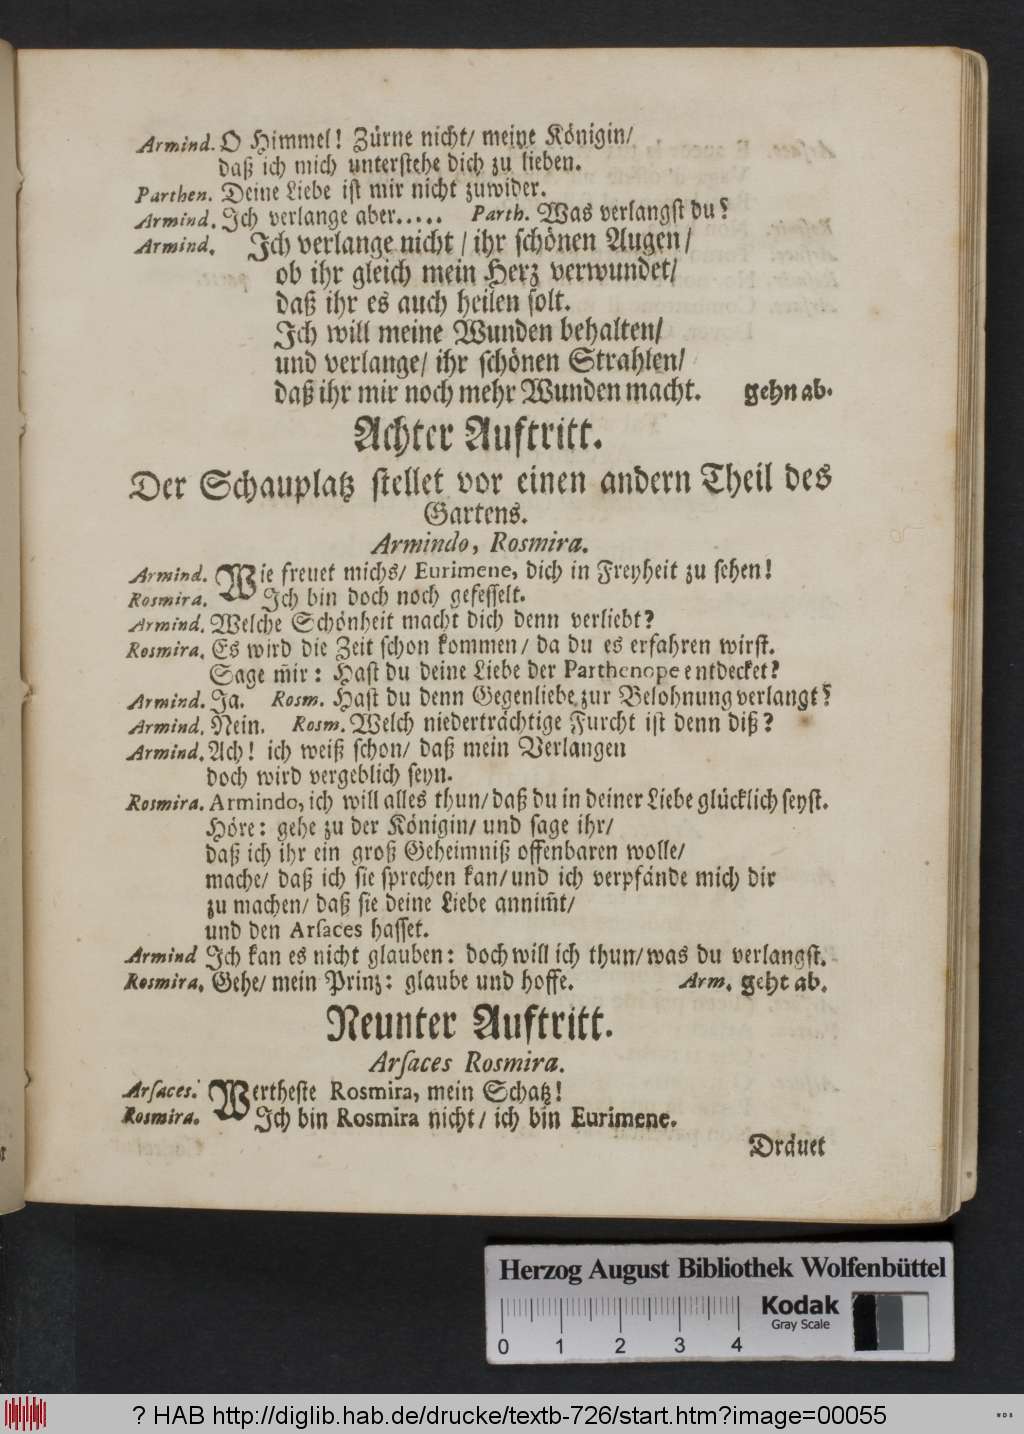 Armind. O Himmel! Zürne nicht/ meine Königin/
daß ich mich unterstehe dich zu lieben.
Parthen. Deine Liebe ist mir nicht zuwider.
Armind. Ich verlange aber..... Parth. Was verlangst du?
Armind. Ich verlange nicht / ihr schönen Augen/
ob ihr gleich mein Herz verwundet/
daß ihr es auch heilen solt.
Ich will meine Wunden behalten/
und verlange/ ihr schönen Strahlen/
daß ihr mir noch mehr Wunden macht. gehn ab.
Achter Auftritt.
Der Schauplatz stellet vor einen andern Theil des
Gartens.
Armindo, Rosmira.
Armind. Wie freuet michs/ Eurimene, dich in Freyheit zu sehen!
Rosmira. Ich bin doch noch gefesselt.
Armind. Welche Schönheit macht dich denn verliebt?
Rosmira. Es wird die Zeit schon kommen/ da du es erfahren wirst.
Sage m̃ir: Hast du deine Liebe der Parthenope entdecket?
Armind. Ja. Rosm. Hast du denn Gegenliebe zur Belohnung verlangt?
Armind. Nein. Rosm. Welch niederträchtige Furcht ist denn diß?
Armind. Ach! ich weiß schon/ daß mein Verlangen
doch wird vergeblich seyn.
Rosmira. Armindo, ich will alles thun/ daß du in deiner Liebe glücklich seyst.
Höre: gehe zu der Königin/ und sage ihr/
daß ich ihr ein groß Geheimniß offenbaren wolle/
mache/ daß ich sie sprechen kan/ und ich verpfände mich dir
zu machen/ daß sie deine Liebe annim̃t/
und den Arsaces hasset.
Armind Ich kan es nicht glauben: doch will ich thun/ was du verlangst.
Rosmira. Gehe/ mein Prinz: glaube und hoffe. Arm. geht ab.
Neunter Auftritt.
Arsaces Rosmira.
Arsaces. Wertheste Rosmira, mein Schatz!
Rosmira. Ich bin Rosmira nicht/ ich bin Eurimene.
Dräuet
Herzog August Bibliothek Wolfenbüttel
0 1 2 3 4
Kodak
Gray Scale
? HAB http://diglib.hab.de/drucke/textb-726/start.htm?image=00055